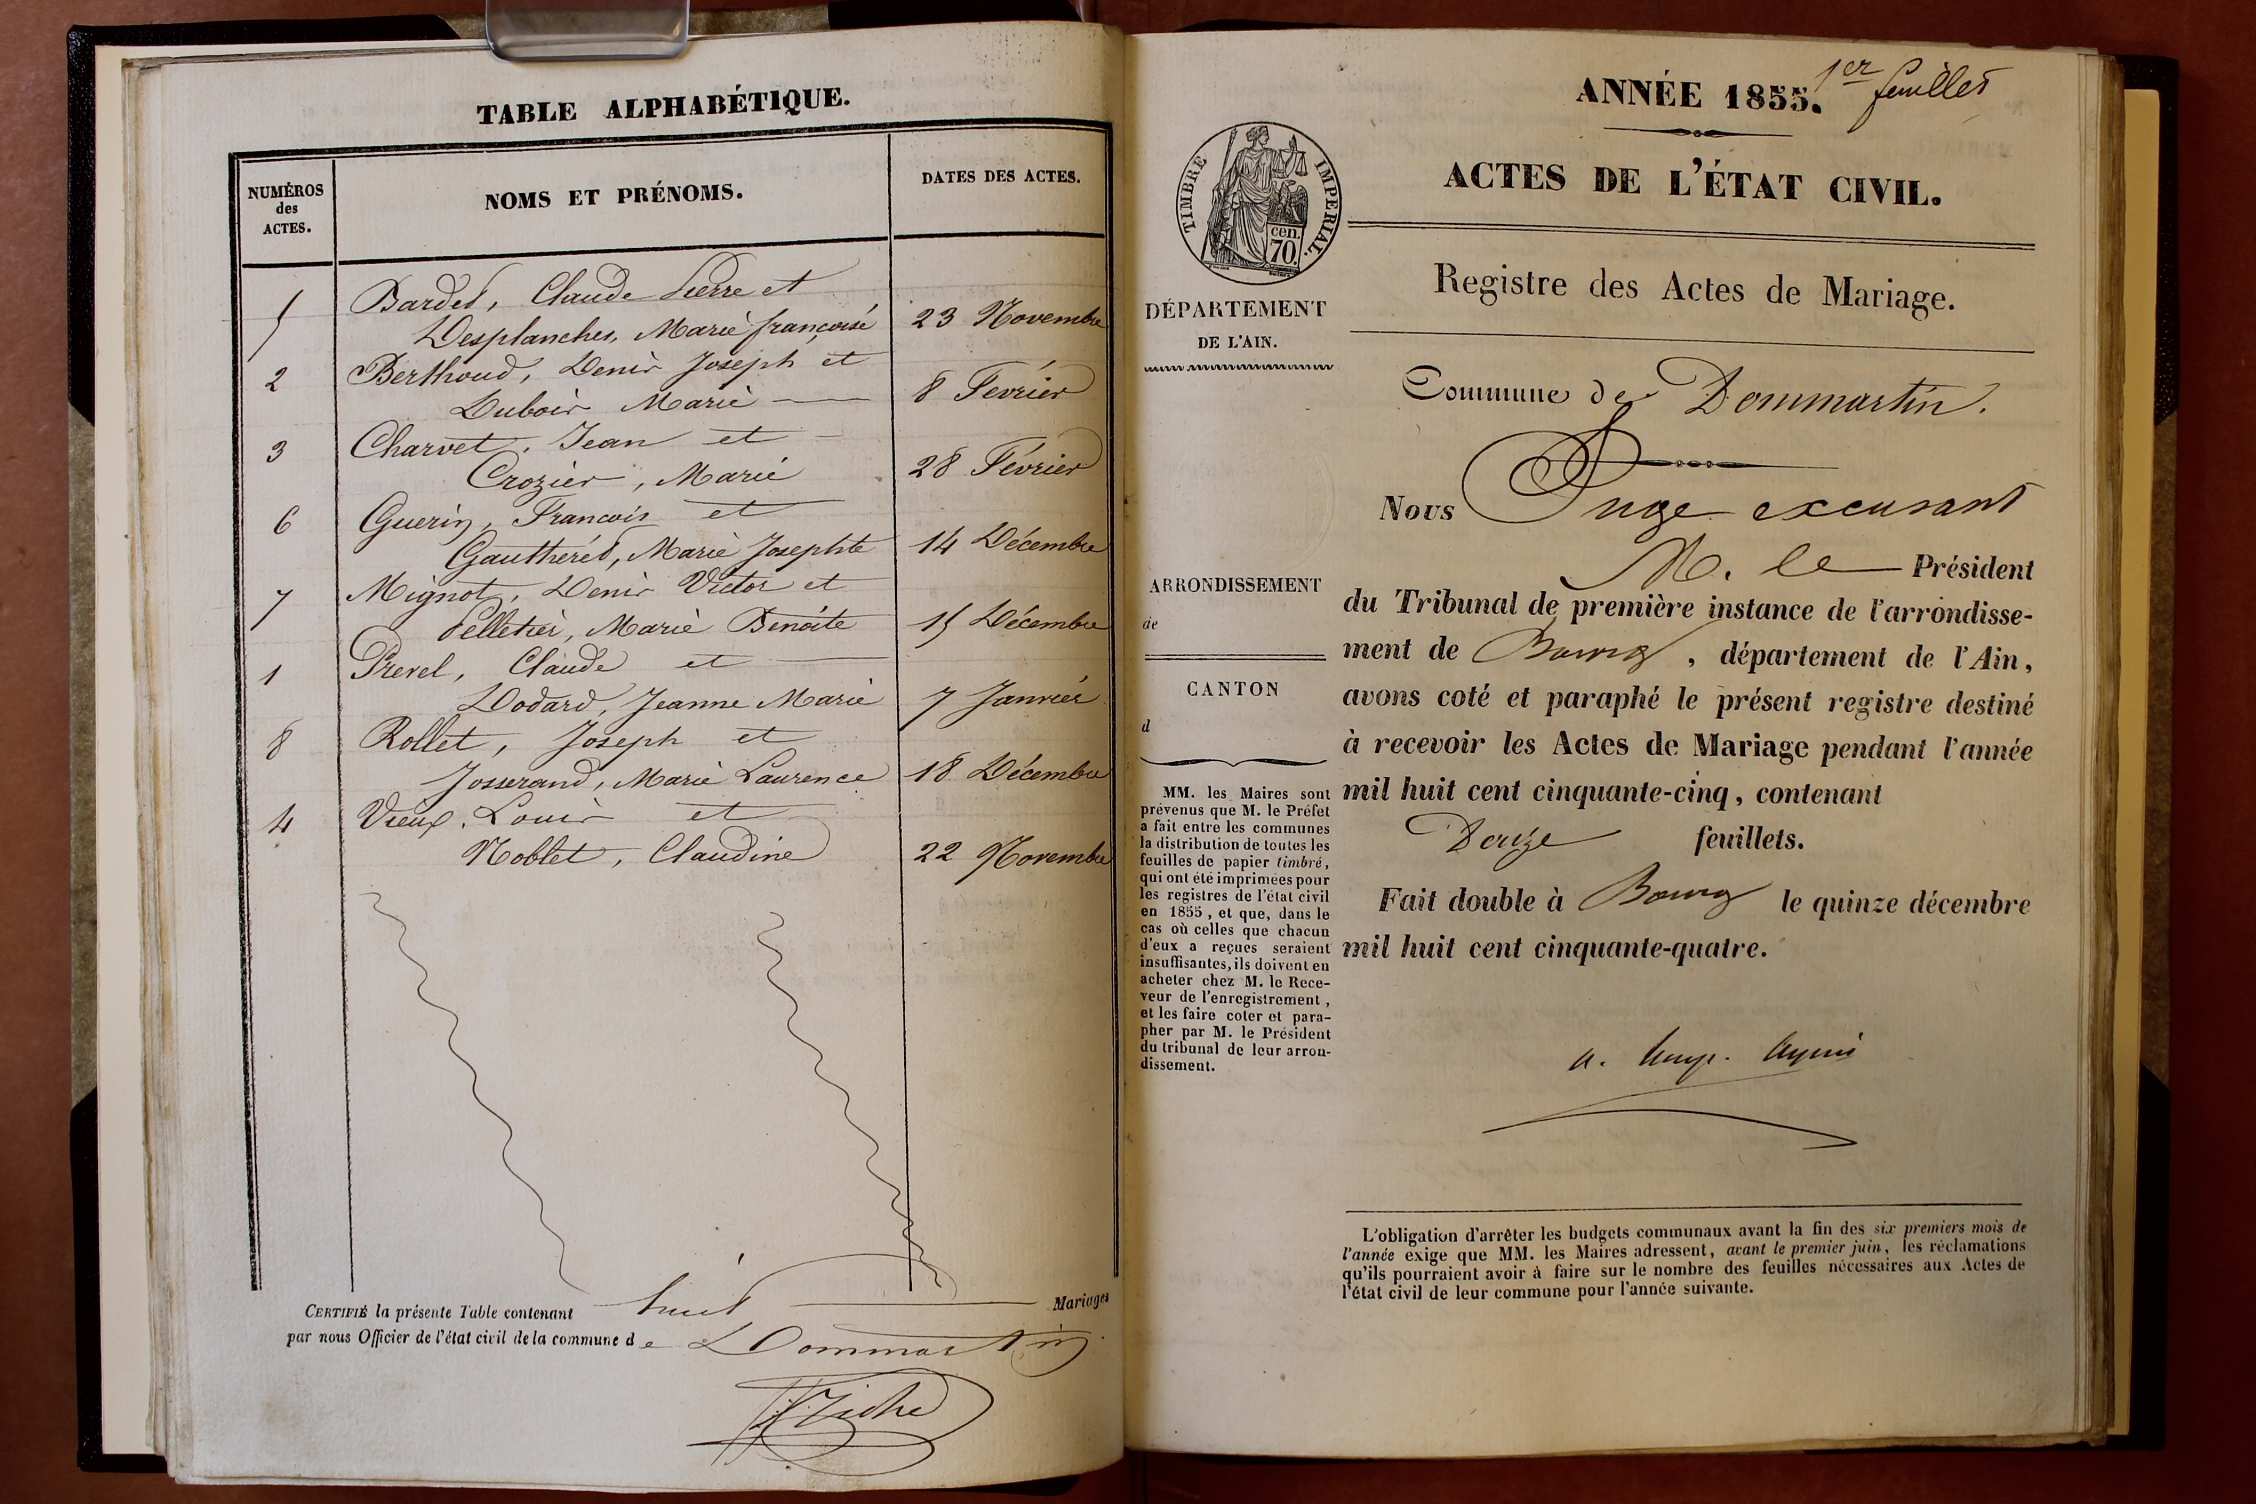 TABLE ALPHABÉTIQUE.
NUMÉROS
des
ACTES.
NOMS ET PRÉNOMS.
DATES DES ACTES.
5 Bardet, Claude Pierre et
Desplanches, Marie françoise 23 Novembre
2 Berthoud, Denis Joseph et
Dubois Marie 8 Fevrier
3 Charvet, Jean et
Crozier, Marie 28 Février
6 Guerin, Francois et
Gautheret, Marie Josephte 14 Décembre
7 Mignot, Denis Victor et
Pelletier, Marie Benoite 15 Décembre
1 Prevel, Claude et
Dodard, Jeanne Marie 7 Janvier
8 Rollet, Joseph et
Josserand, Marie Laurence 18 Décembre
4 Vieux, Louis et
Noblet, Claudine 22 Novembre
CERTIFIÉ la présente Table contenant huit Mariages
par nous Officier de l'état civil de la commune de Dommartin
1er feuillet
ANNÉE 1855.
ACTES DE L'ÉTAT CIVIL.
Registre des Actes de Mariage.
TIMBRE IMPERIAL.
cen.
70.
DÉPARTEMENT
DE L'AIN.
ARRONDISSEMENT
de
CANTON
d
MM. les Maires sont
prévenus que M. le Préfet
a fait entre les communes
la distribution de toutes les
feuilles de papier timbré,
qui ont été imprimées pour
les registres de l'état civil
en 1855, et que, dans le
cas où celles que chacun
d'eux a reçues seraient
insuffisantes, ils doivent en
acheter chez M. le Rece-
veur de l'enregistrement,
et les faire coter et para-
pher par M. le Président
du tribunal de leur arron-
dissement.
Commune de Dommartin.
Nous Juge excusant
M. le Président
du Tribunal de première instance de l'arrondisse-
ment de Bourg, département de l'Ain,
avons coté et paraphé le présent registre destiné
à recevoir les Actes de Mariage pendant l'année
mil huit cent cinquante-cinq, contenant
Douze feuillets.
Fait double à Bourg le quinze décembre
mil huit cent cinquante-quatre.
L'obligation d'arrêter les budgets communaux avant la fin des six premiers mois de
l'année exige que MM. les Maires adressent, avant le premier juin, les réclamations
qu'ils pourraient avoir à faire sur le nombre des feuilles nécessaires aux Actes de
l'état civil de leur commune pour l'année suivante.